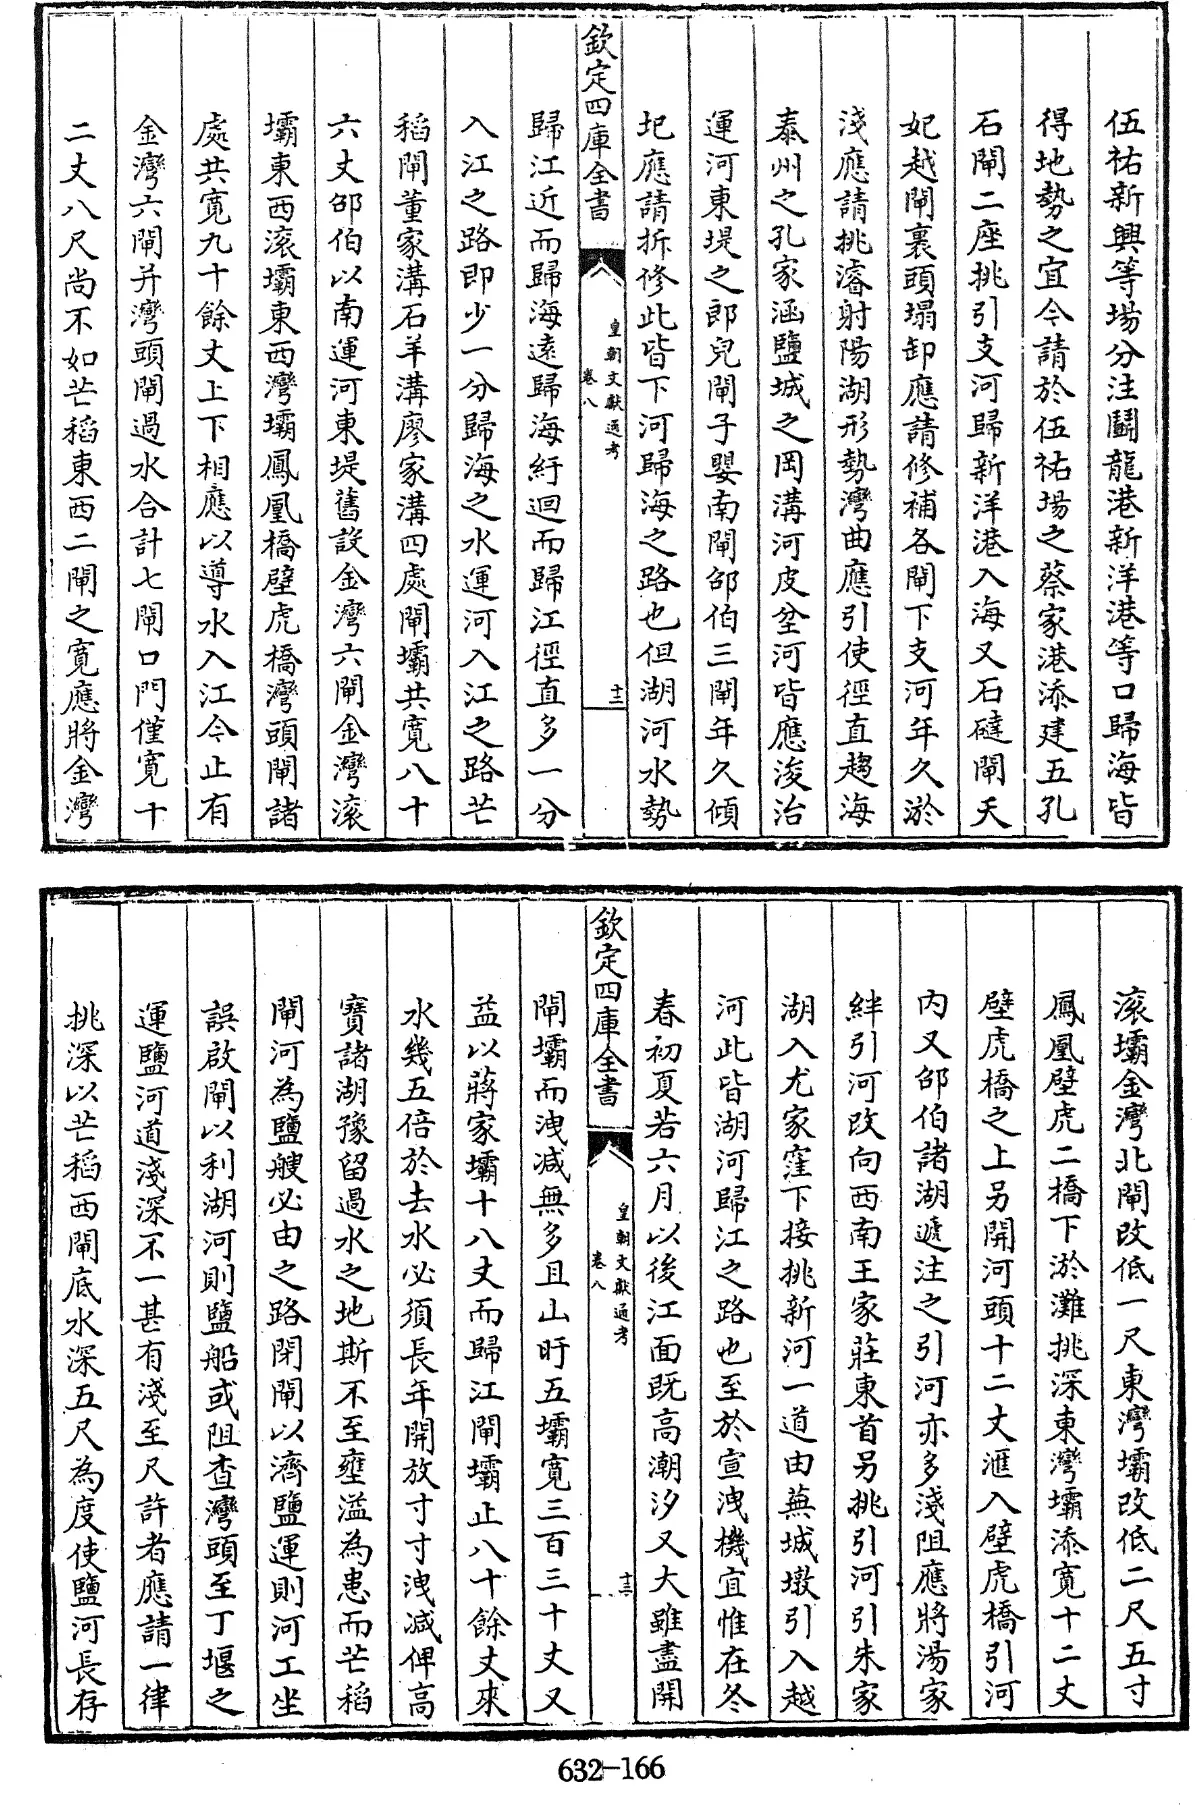 伍祐新興等場分注鬭龍港新洋港等口歸海皆
得地勢之宜今請於伍祐場之蔡家港添建五孔
石閘二座挑引支河歸新洋港入海又石䃮閘天
妃越閘裏頭塌卸應請修補各閘下支河年久淤
淺應請挑濬射陽湖形勢灣曲應引使徑直趨海
泰州之孔家涵鹽城之岡溝河皮坌河皆應浚治
運河東堤之郎兒閘子嬰南閘邵伯三閘年久傾
圯應請拆修此皆下河歸海之路也但湖河水勢
欽定四庫全書
皇朝文獻通考
卷八
十二
歸江近而歸海遠歸海紆迴而歸江徑直多一分
入江之路即少一分歸海之水運河入江之路芒
稻閘董家溝石羊溝廖家溝四處閘壩共寬八十
六丈邵伯以南運河東堤舊設金灣六閘金灣滚
壩東西滚壩東西灣壩鳳凰橋壁虎橋灣頭閘諸
處共寬九十餘丈上下相應以導水入江今止有
金灣六閘并灣頭閘過水合計七閘口門僅寬十
二丈八尺尚不如芒稻東西二閘之寬應將金灣
滚壩金灣北閘改低一尺東灣壩改低二尺五寸
鳳凰壁虎二橋下淤灘挑深東灣壩添寬十二丈
壁虎橋之上另開河頭十二丈滙入壁虎橋引河
内又邵伯諸湖遞注之引河亦多淺阻應將湯家
絆引河改向西南王家莊東首另挑引河引朱家
湖入尤家窪下接挑新河一道由蕪城墩引入越
河此皆湖河歸江之路也至於宣洩機宜惟在冬
春初夏若六月以後江面既高潮汐又大雖盡開
欽定四庫全書
皇朝文獻通考
卷八
十三
閘壩而洩減無多且山盱五壩寬三百三十丈又
益以蔣家壩十八丈而歸江閘壩止八十餘丈來
水幾五倍於去水必須長年開放寸寸洩減俾高
寶諸湖豫留過水之地斯不至壅溢為患而芒稻
閘河為鹽艘必由之路閉閘以濟鹽運則河工坐
誤啟閘以利湖河則鹽船或阻查灣頭至丁堰之
運鹽河道淺深不一甚有淺至尺許者應請一律
挑深以芒稻西閘底水深五尺為度使鹽河長存
632-166